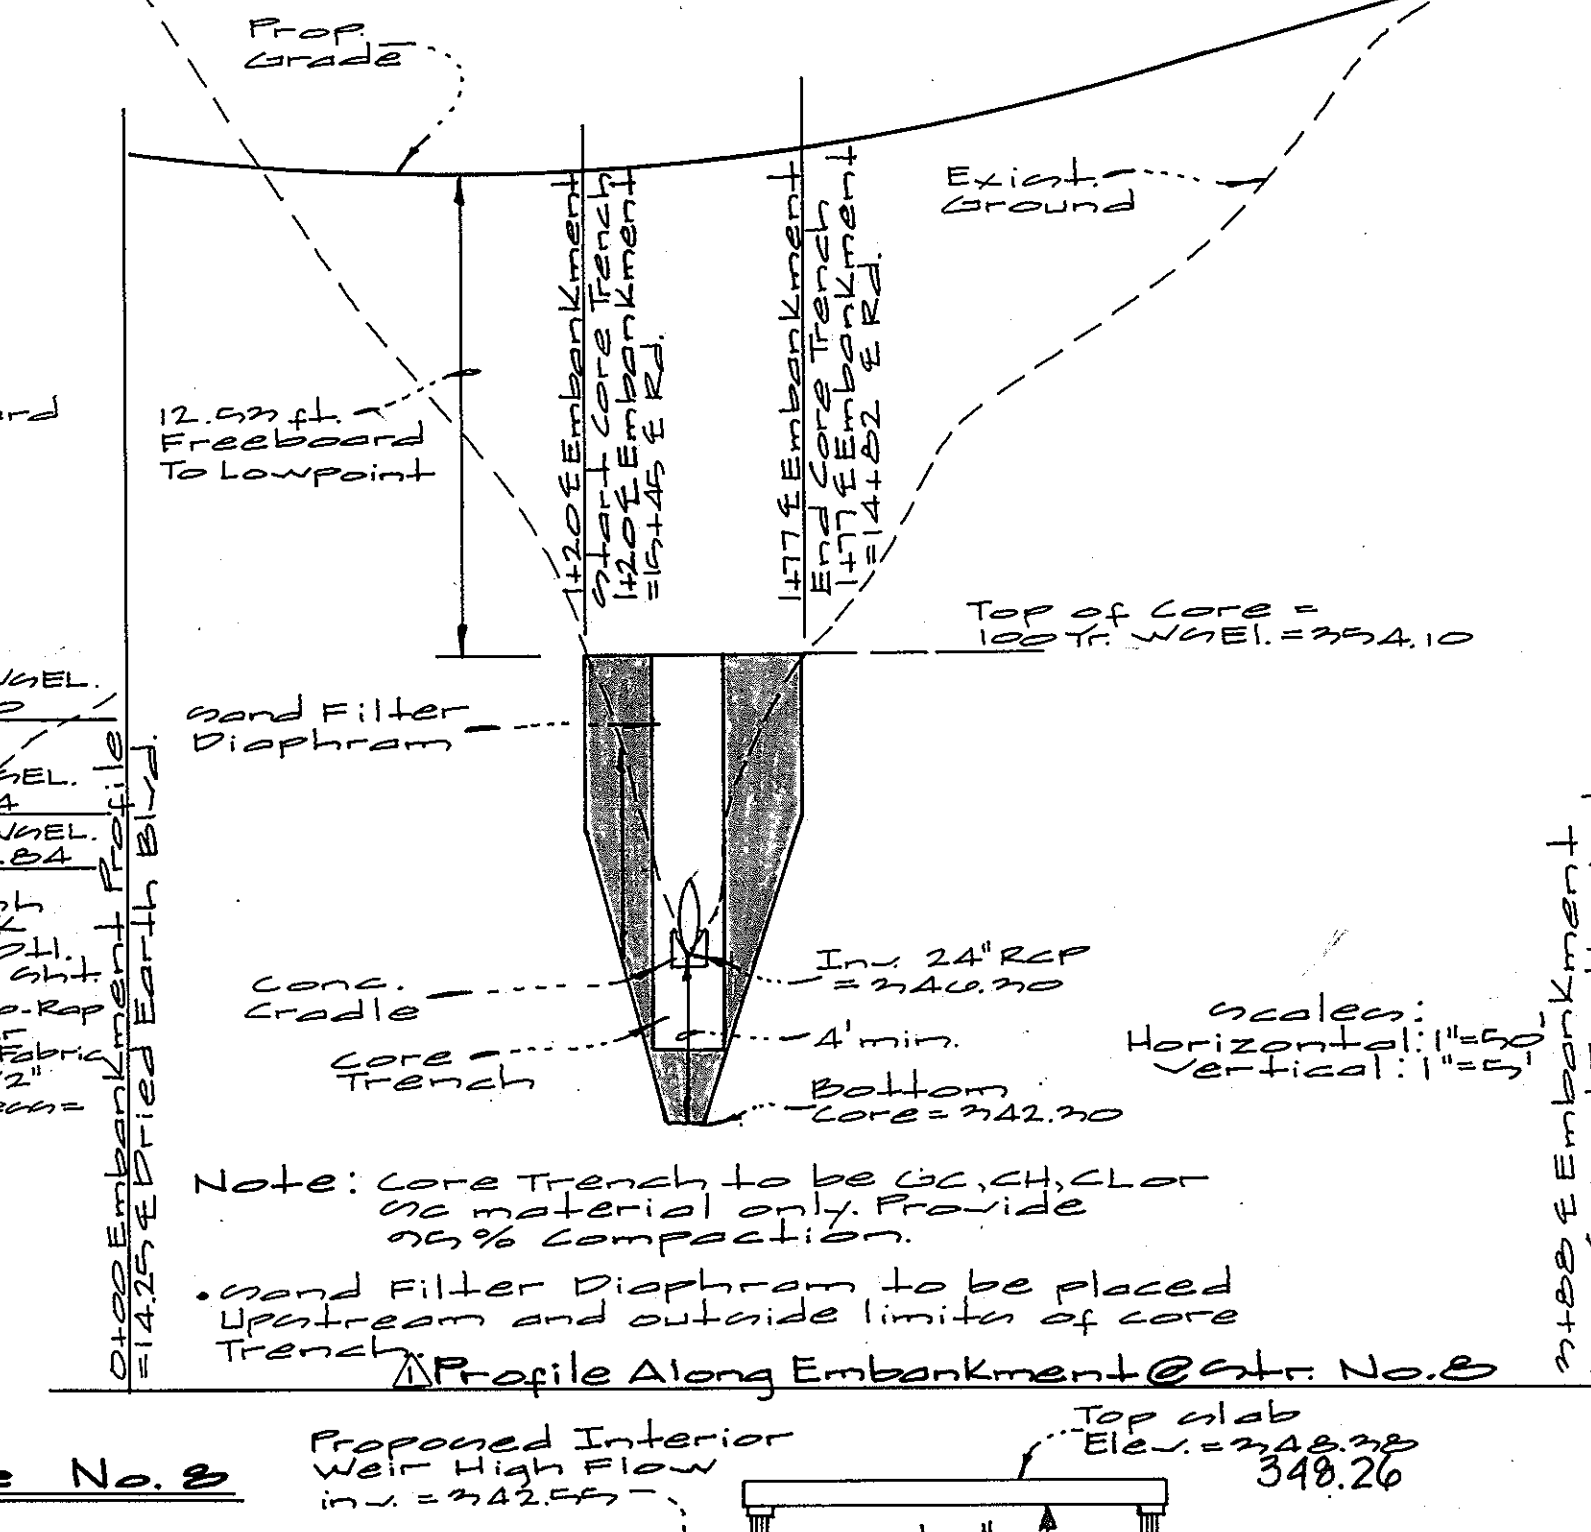 Prop.
Grade
Exist.
Ground
1+20 ℄ Embankment
Start Core Trench
1+20 ℄ Embankment
=15+45 ℄ Rd.
1+77 ℄ Embankment
End Core Trench
1+77 ℄ Embankment
=14+82 ℄ Rd.
12.53 ft.
Freeboard
To Lowpoint
Top of Core =
100 Yr. WSEl. = 354.10
WSEL.
Sand Filter
Diaphram
SEL.
4
WSEL.
.84
0+00 Embankment Profile
=14.25 ℄ Dried Earth Blvd.
Sht.
p-Rap
Fabric
Conc.
Cradle
Inv. 24" RCP
= 346.30
Core
Trench
4' min.
Bottom
Core = 342.30
Scales:
Horizontal: 1"=50'
Vertical: 1"=5'
3+88 ℄ Embankment
Note: Core Trench to be GC, CH, CL or
SC material only. Provide
95% Compaction.
• Sand Filter Diaphram to be placed
Upstream and outside limits of core
Trench.
1 Profile Along Embankment @ Str. No. 8
No. 8
Proposed Interior
Weir High Flow
inv. = 342.55
Top slab
Elev. = 348.38
348.26